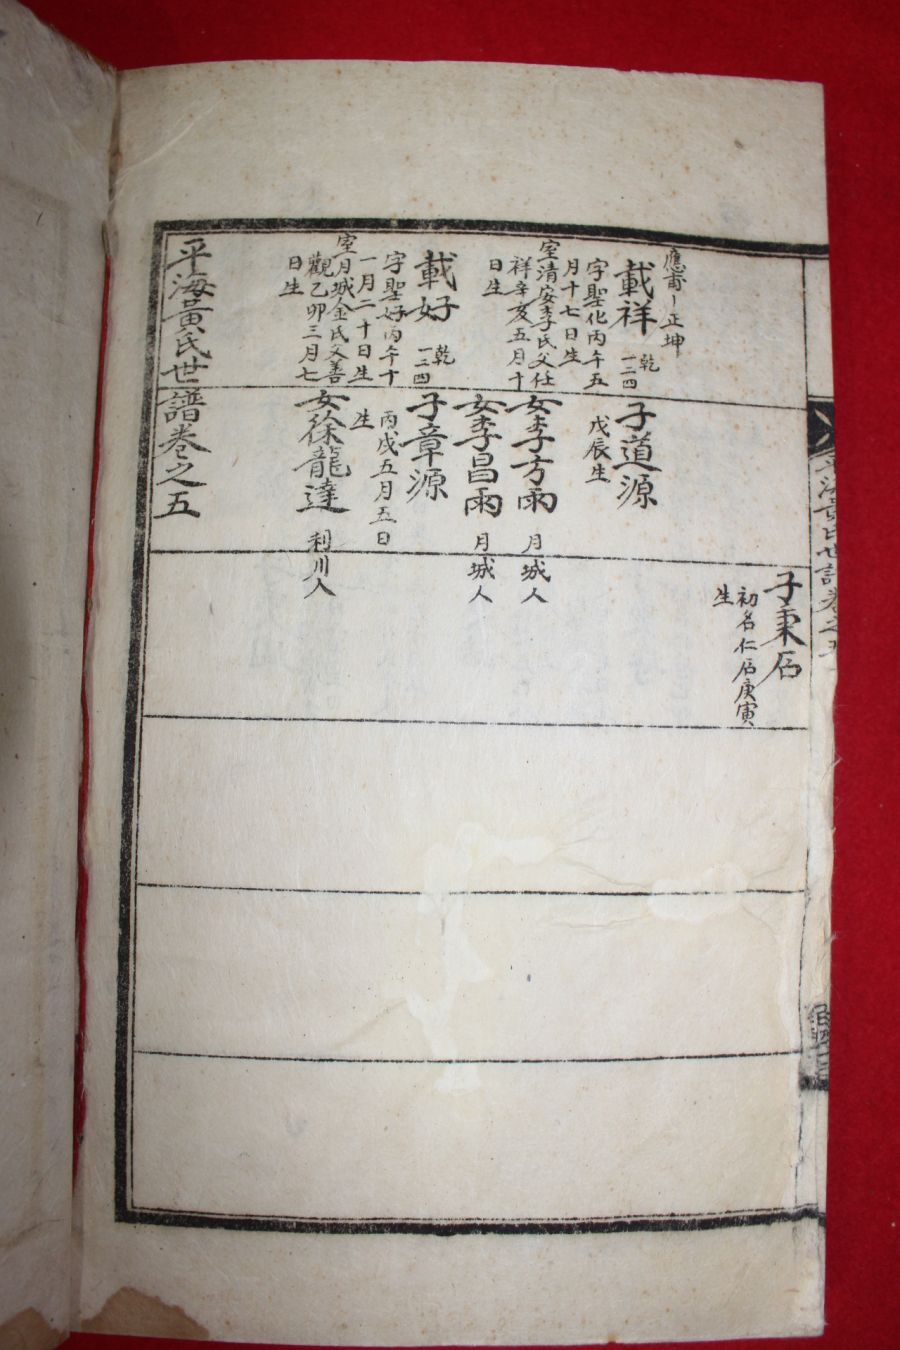 子秉局
初名仁局庚寅
生
應甫一正坤
載祥 乾一二四
字聖化丙午五
月十七日生
室清安李氏父任
祥辛亥五月十
日生
子道源
戊辰生
女李方雨 月城人
女李昌雨 月城人
載好 乾一二四
字聖好丙午十
一月二十日生
室月城金氏父善
觀乙卯三月七
日生
子章源
丙戌五月五日
生
女徐龍達 利川人
平海黃氏世譜卷之五
平海黃氏世譜卷之五